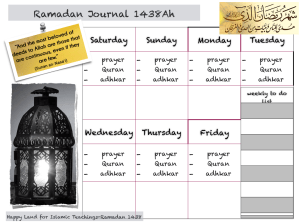 Ramadan Journal 1438Ah
شهر رمضان الذي
"And the most beloved of
deeds to Allah are those that
are continuous, even if they
are few."
Saturday
- prayer
- Quran
- adhkar
Sunday
- prayer
- Quran
- adhkar
Monday
- prayer
- Quran
- adhkar
Tuesday
- prayer
- Quran
- adhkar
weekly to do
list
Wednesday
- prayer
- Quran
- adhkar
Thursday
- prayer
- Quran
- adhkar
Friday
- prayer
- Quran
- adhkar
Happy Land for Islamic Teachings:Ramadan 1438